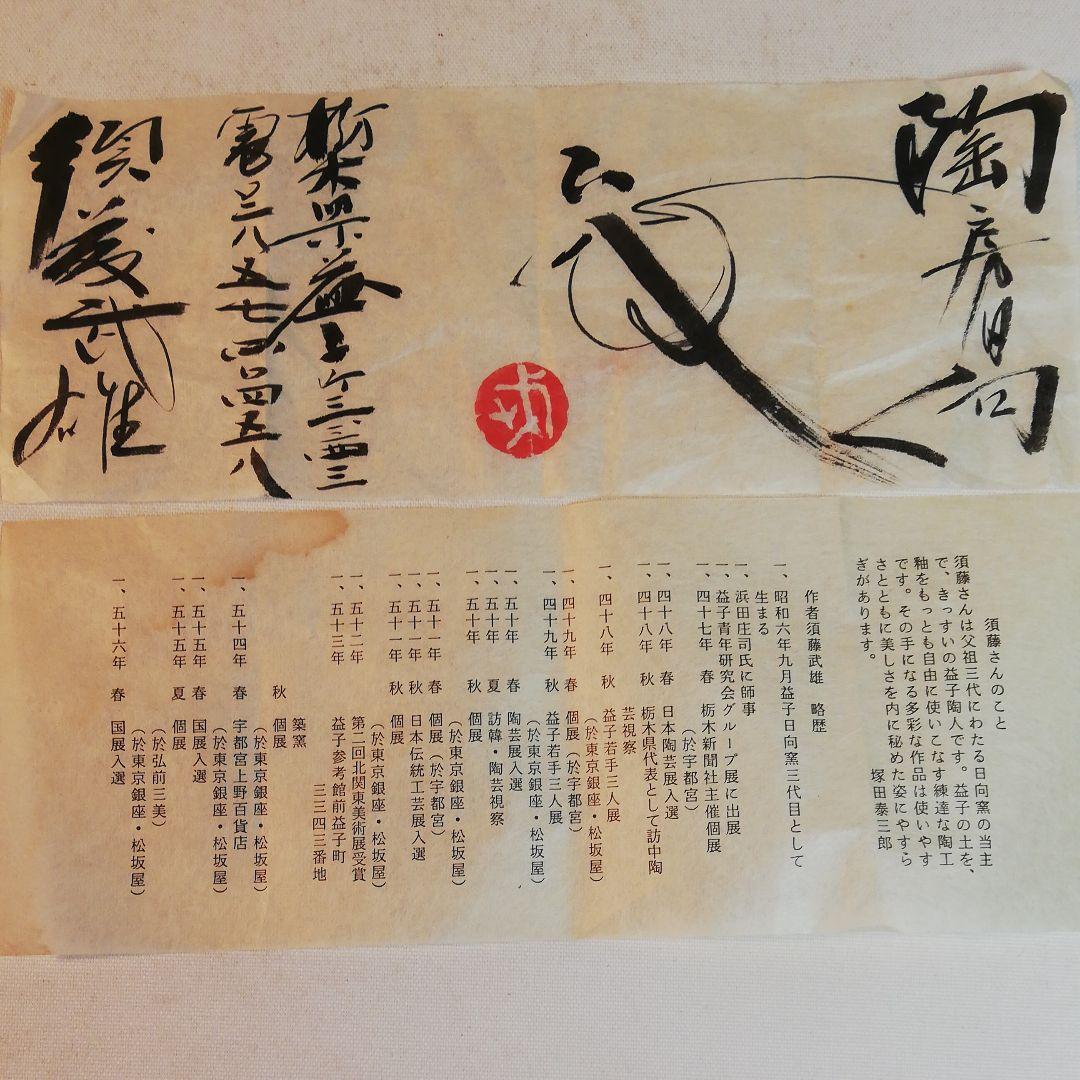 陶房日向
栃木県益子町三三四三
電〇二八五七二四五八
須藤武雄
須藤さんのこと
須藤さんは父祖三代にわたる日向窯の当主
で、きっすいの益子陶人です。益子の土を、
釉をもっとも自由に使いこなす練達な陶工
です。その手になる多彩な作品は使いやす
さとともに美しさを内に秘めた姿にやすら
ぎがあります。
塚田泰三郎
作者須藤武雄 略歴
一、昭和六年九月益子日向窯三代目として
生まる
一、浜田庄司氏に師事
一、益子青年研究会グループ展に出展
一、四十七年 春 栃木新聞社主催個展
(於宇都宮)
一、四十八年 春 日本陶芸展入選
一、四十八年 秋 栃木県代表として訪中陶
芸視察
一、四十八年 秋 益子若手三人展
(於東京銀座・松坂屋)
一、四十九年 春 個展(於宇都宮)
一、四十九年 秋 益子若手三人展
(於東京銀座・松坂屋)
一、五十年 春 陶芸展入選
一、五十年 夏 訪韓・陶芸視察
一、五十年 秋 個展
(於東京銀座・松坂屋)
一、五十一年 春 個展(於宇都宮)
一、五十一年 秋 日本伝統工芸展入選
一、五十一年 秋 個展
(於東京銀座・松坂屋)
一、五十二年 第二回北関東美術展受賞
一、五十三年 益子参考館前益子町
三三四三番地
築窯
秋 個展
(於東京銀座・松坂屋)
一、五十四年 春 宇都宮上野百貨店
(於東京銀座・松坂屋)
一、五十五年 春 国展入選
一、五十五年 夏 個展
(於弘前三美)
一、五十六年 春 国展入選